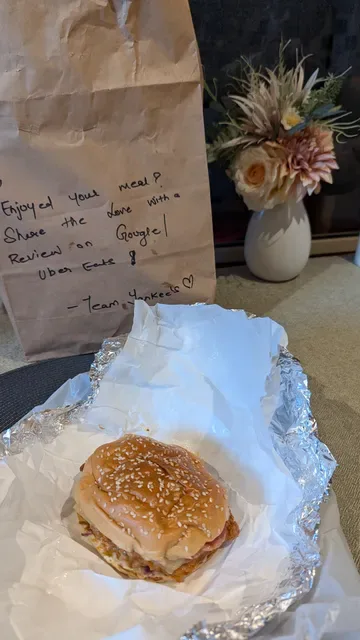 Enjoyed your meal?
Share the Love with a
Review on Google/
Uber Eats !
- Team Yankees ♡